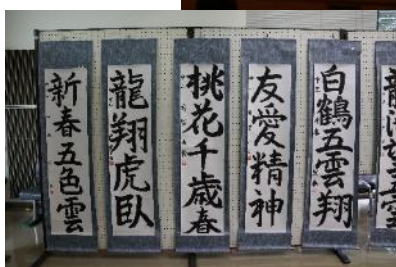 新春五色雲
龍翔虎臥
桃花千歳春
友愛精神
白鶴五雲翔